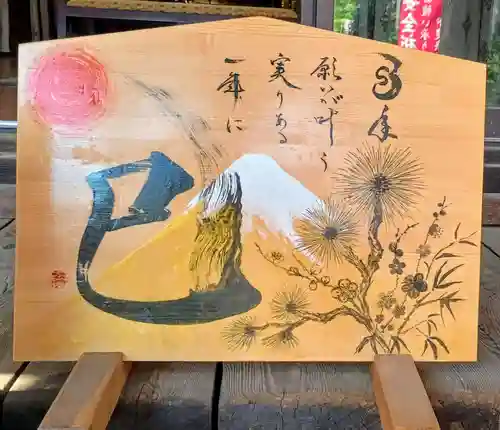 巳年
願いが叶う
実りある
一年に
巳
安全祈